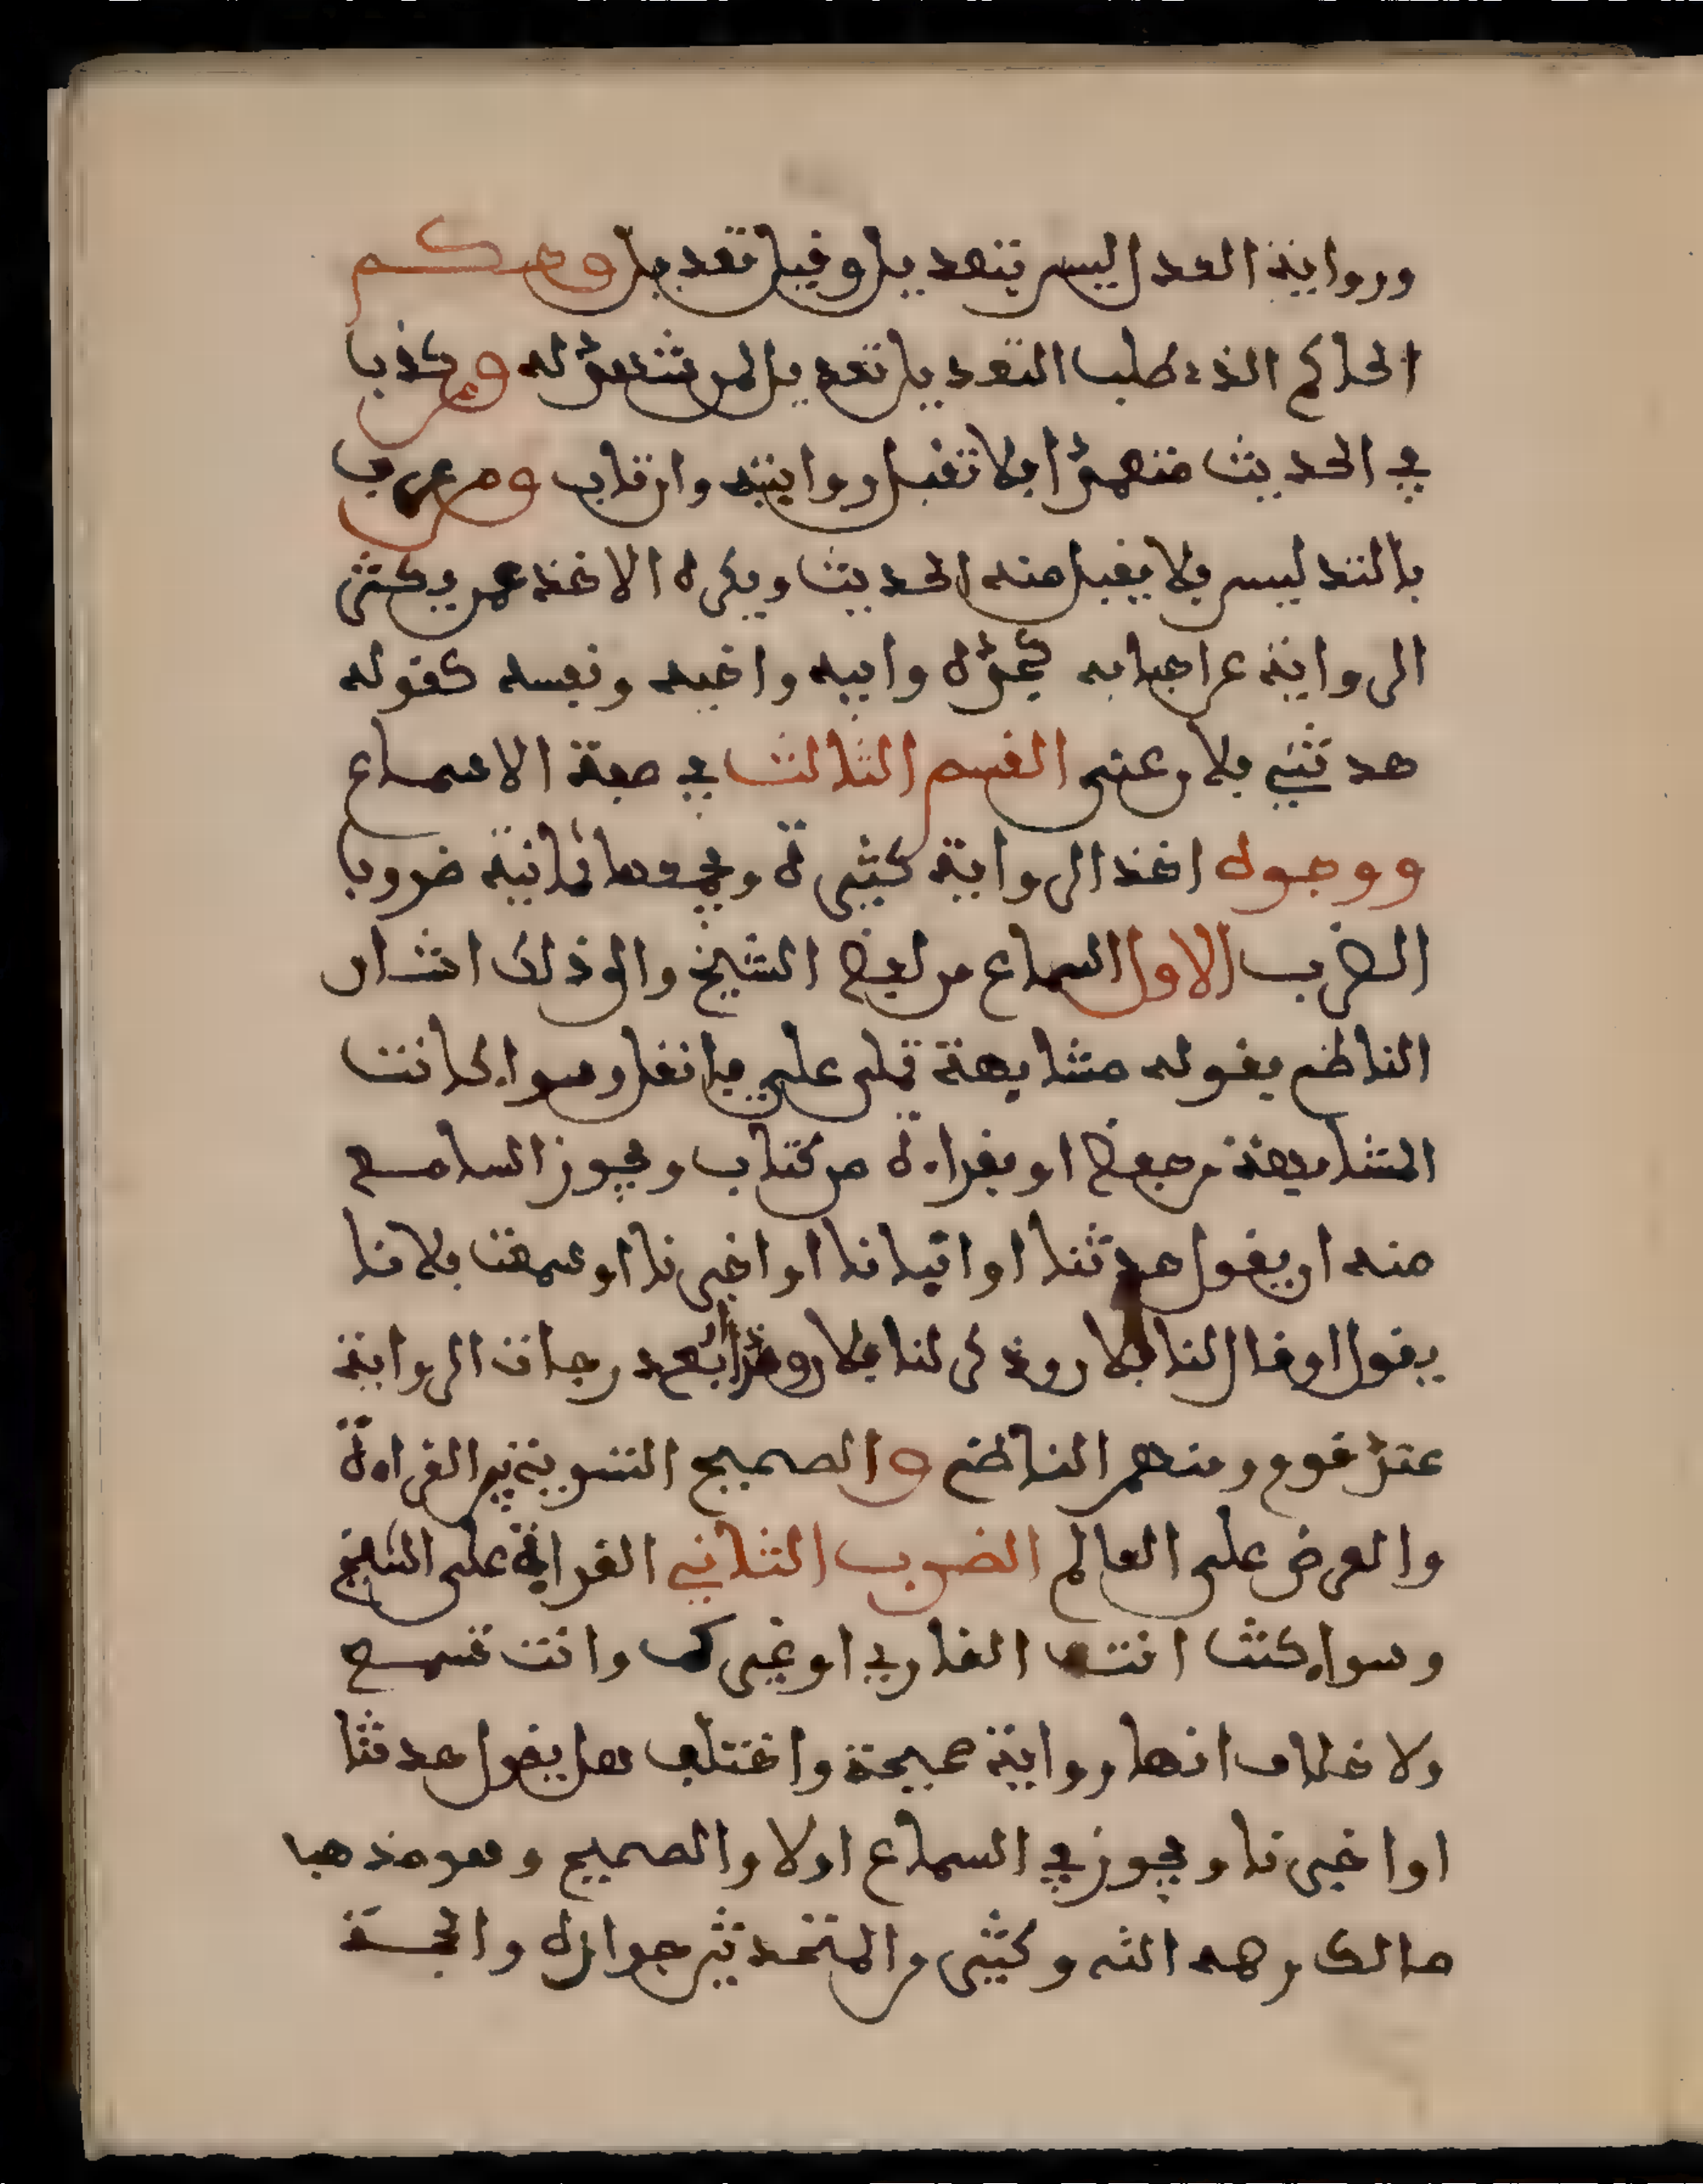 ورواية العدل ليس بتعديل وقيل تعديل وحكم
الحاكم الذي طلب التعديل تعديل لمن شهد له ومن كذب
في الحديث متعمدا فلا تقبل روايته وان تاب ومن عرف
بالتدليس فلا يقبل منه الحديث ويكره الاخذ عمن يكثر
الرواية عن احبابه كجده وابيه واخيه ونفسه كقوله
حدثني فلان عني القسم الثالث في صفة الاسماع
ووجوه اخذ الرواية كثيرة ويجمعها ثمانية ضروب
الضرب الاول السماع من لفظ الشيخ والى ذلك اشار
الناظم بقوله مشابهة تملى علي فانقل وسواء كانت
المشابهة من حفظ او بقراءة من كتاب ويجوز السامع
منه ان يقول حدثنا او انبانا او اخبرنا او سمعت فلانا
يقول او قال لنا فلان وذكر لنا فلان وهذا ارفع درجات الرواية
عند قوم ومنهم الناظم والصحيح التسوية بين القراءة
والعرض على العالم الضرب الثاني القراءة على الشيخ
وسواء كنت انت القاري او غيرك وانت تسمع
ولا خلاف انها رواية صحيحة واختلف هل يقول حدثنا
او اخبرنا ويجوز في السماع اولا والصحيح وهو مذهب
مالك رحمه الله وكثير من المتحدثين جوازه والحجة